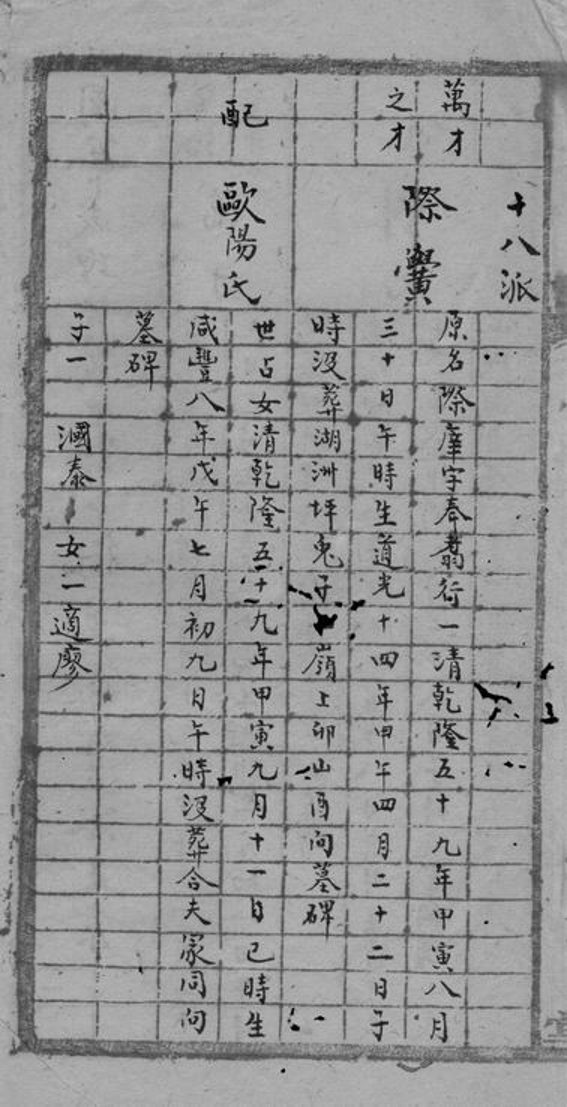 十八派
萬才
之才
際黌
原名際庠字奉翥行一清乾隆五十九年甲寅八月
三十日午時生道光十四年甲午四月二十二日子
時沒葬湖洲坪兔子嶺上卯山酉向墓碑
配
歐陽氏
世占女清乾隆五十九年甲寅九月十一日巳時生
咸豐八年戊午七月初九日午時沒葬合夫冢同向
墓碑
子一 漍泰 女一適廖